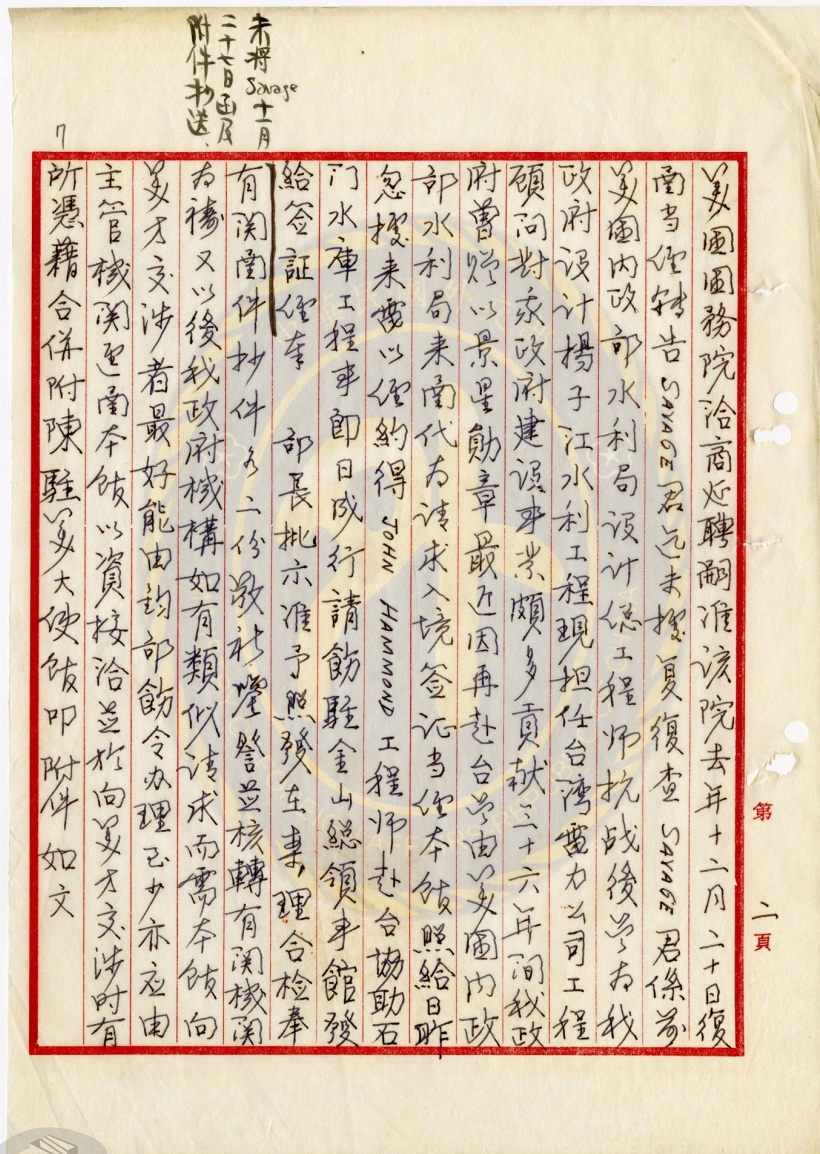 未將Savage十一月
二十七日函及
附件抄送、
7
美國國務院洽商延聘嗣准該院去年十二月二十日復
函当經轉告SAVAGE君迄未據复復查SAVAGE君係前
美國內政部水利局設計總工程师抗战後曾为我
政府设计揚子江水利工程現担任台湾電力公司工程
顾问对我政府建设事業頗多貢献三十六年间我政
府曾贈以景星勛章最近因再赴台曾由美國內政
部水利局来函代为请求入境签证当經本馆照給日昨
忽據来電以經約得JOHN HAMMOND工程师赴台協助石
门水庫工程事即日成行請飭駐金山総領事館發
給签証經奉 部長批示准予照發在案理合检奉
有関函件抄件各二份敬祈鑒詧並核轉有関機関
为禱又以後我政府機構如有類似请求而需本馆向
美方交涉者最好能由鈞部飭令办理至少亦应由
主管機関逕函本馆以資接洽並於向美方交涉时有
所憑藉合併附陳駐美大使馆叩附件如文
第二頁